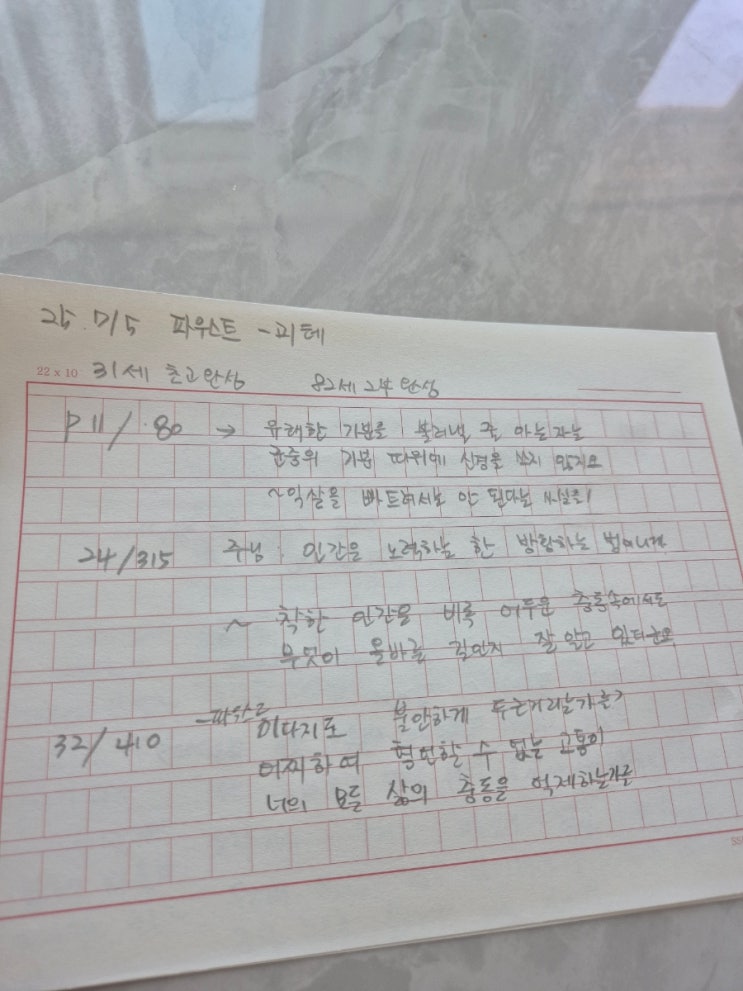 25. 7/5 파우스트 - 괴테
22 x 10 31세 초고완성 82세 2부 완성
P 11/ 80 → 유쾌한 기분을 불러낼 줄 아는 자는
군중의 기분 따위에 신경을 쓰지 않지요
~익살을 빠트려서는 안 된다는 사실을!
24/315 주님: 인간은 노력하는 한 방황하는 법이니까
~ 착한 인간은 비록 어두운 충동속에서도
무엇이 올바른 길인지 잘 알고 있더군요
32/410 -파우스트 이다지도 불안하게 두근거리는가?
어찌하여 형언할 수 없는 고통이
너의 모든 삶의 충동을 억제하는가를